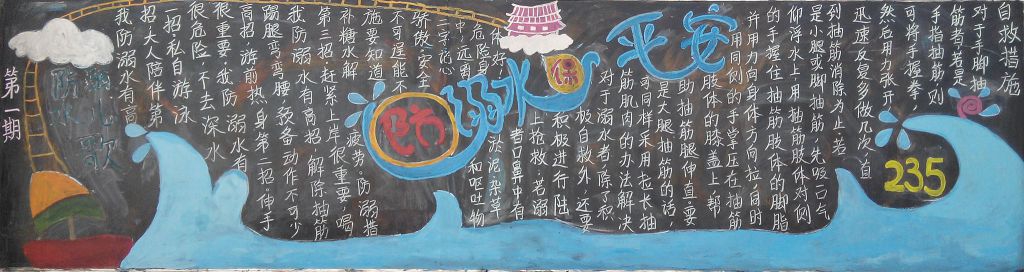 平安
防溺水
保
自救措施
对于手脚抽
筋者若是
手指抽筋，则
可将手握拳，
然后用力张开，
迅速反复多做几次，直
到抽筋消除为止若
是小腿或脚抽筋，先吸一口气
仰浮水上，用抽筋肢体对侧
的手握住抽筋肢体的脚脂
并用力向身体方向拉，同时
用同侧的手掌压在抽筋
肢体的膝盖上，帮
助抽筋腿伸直；要
是大腿抽筋的话，
可同样采用拉长抽
筋肌肉的办法解决
对于溺水者，除了积
极自救外，还要
积极进行陆
上抢救，若溺
者口鼻中有
淤泥杂草
和呕吐物
235
防溺水歌
我防溺水有高
招，大人陪伴第
一招，私自游泳
很危险，不去深水
很重要；我防溺水有
高招，游前热身第二招，伸手
踢腿弯弯腰，预备动作不可少
我防溺水有高招，解除抽筋
第三招，赶紧上岸很重要，喝
补糖水解疲劳。防溺措
施要知道
不可逞能不
骄傲，安全
三字记心
中，远离
危险身
体好
第一期